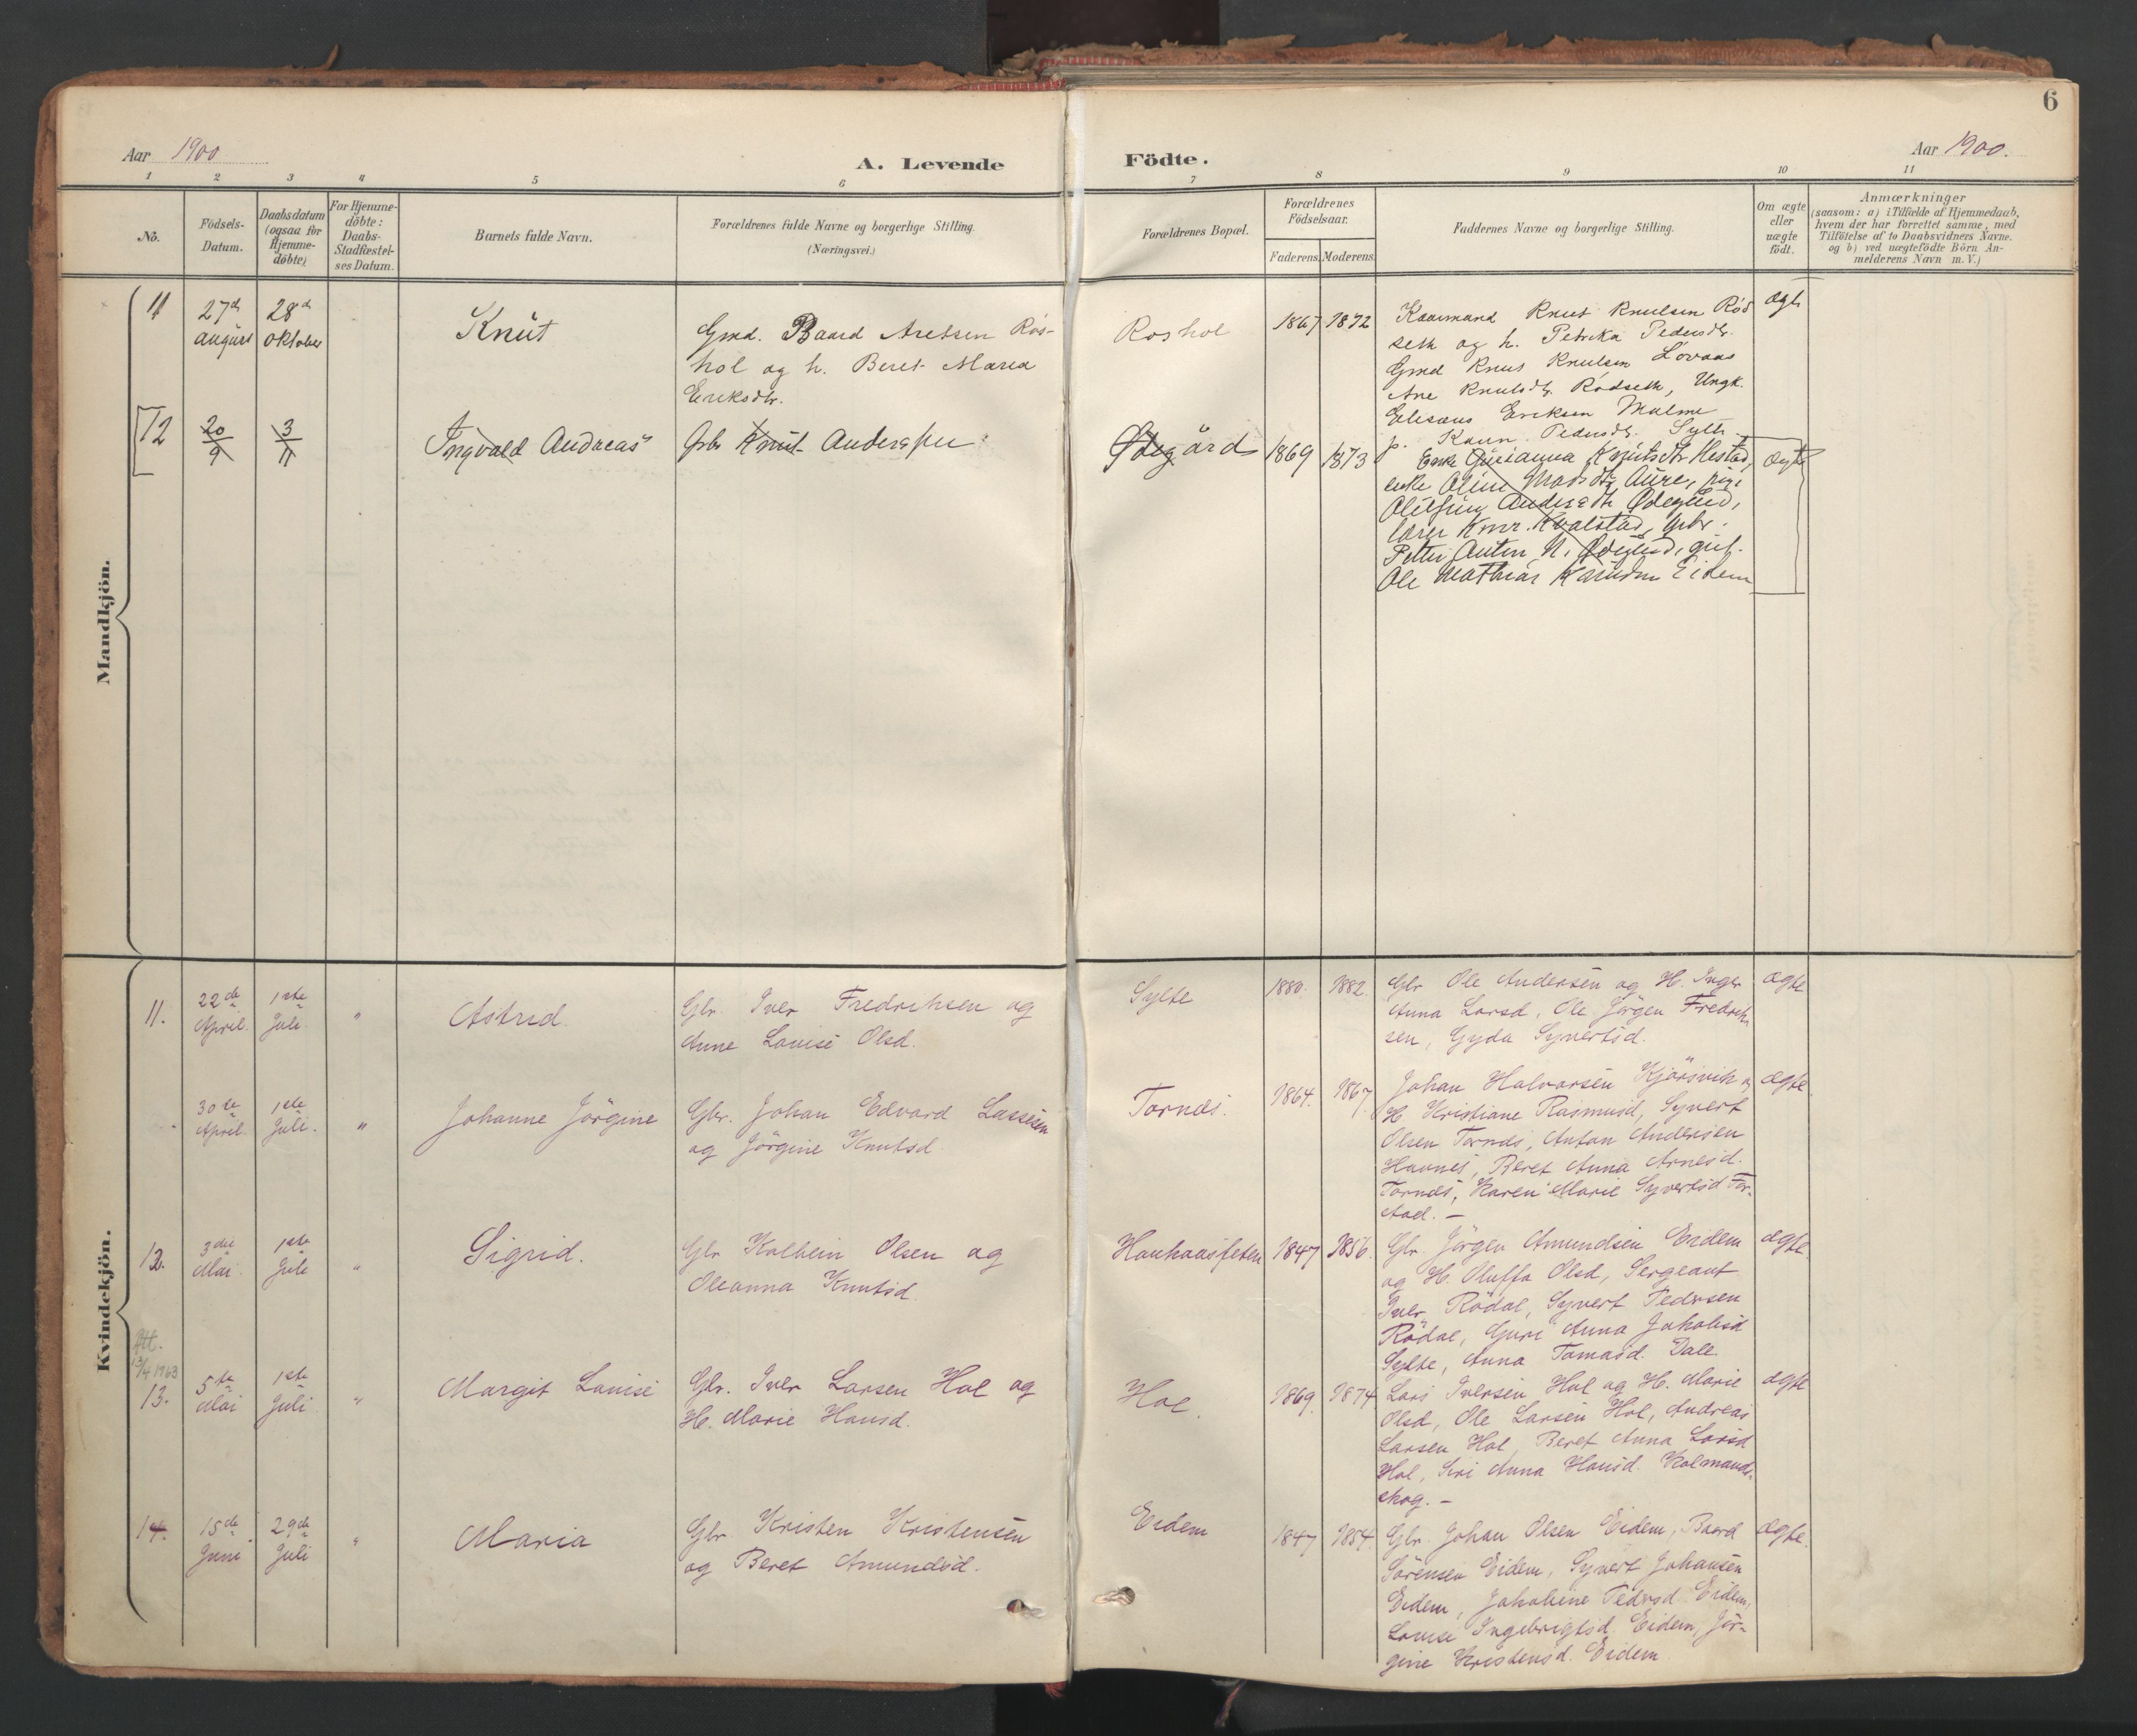 6
Aar 1900.
A. Levende
Födte.
Aar 1900.
1 2 3 4 5 6 7 8 9 10 11
No.
Födsels-
Datum.
Daabsdatum
(ogsaa for
Hjemme-
döbte)
For Hjemme-
döbte:
Daabs-
Stadfæstel-
ses Datum.
Barnets fulde Navn.
Forældrenes fulde Navne og borgerlige Stilling.
(Næringsvei.)
Forældrenes Bopæl.
Forældrenes
Födselsaar.
Faderens. Moderens.
Faddernes Navne og borgerlige Stilling.
Om ægte
eller
uægte
födt.
Anmærkninger
(saasom: a) i Tilfælde af Hjemmedaab,
hvem der har forrettet samme, med
Tilföielse af to Daabsvidners Navne.
og b) ved uægtefödte Börn An-
melderens Navn m. V.)
Mandkjön.
11
27d
august
28d
oktober
Knut
Gmd. Baard Aretsen Ros-
hol og h. Beret Maria
Eriksdtr.
Roshol
1867 1872
Kaarmand Knut Knutsen Rød
seth og h. Petrika Pedersdtr.
Gmd Knut Knutsen Lovaas
Ane Knutsdtr. Rødseth, Ungk.
Elisæus Eriksen Malme
p. Karen Pedersdtr. Sylte
ægte
12
20
9
3
11
Ingvald Andreas
Gbr Knut Andersen
Ødegård
1869 1873
Enke Gurianna Knutsdtr Hestad,
enke Oline Madsdtr Aure, pige
Andersdtr Ødegård,
lærer Knut Kvalstad, Gbr.
Petter Anton N. Ødegård, gut.
Ole Mathias Karlsen Eidem
ægte
Kvindekjön.
11.
22de
April.
1ste
Juli
"
Astrid.
Gbr. Iver Fredriksen og
Anne Lovise Olsd.
Sylte
1880. 1882.
Gbr Ole Andersen og H. Inger
Anna Larsd, Ole Jörgen Fredrik-
sen, Gyda Syvertsd.
ægte
30te
April
1ste
Juli.
"
Johanne Jörgine
Gbr. Johan Edvard Lassesen
og Jörgine Knutsd.
Tornes.
1864. 1867.
Johan Halvorsen Kjörsvik og
H Kristiane Rasmusd, Syvert
Olsen Tornes, Anton Andersen
Havnes, Beret Anna Arnesd.
Tornes, Karen Marie Syvertsd For-
stad. -
ægte
12.
3die
Mai.
1ste
Juli
"
Sigrid.
Gbr Kolbein Olsen og
Oleanna Knutsd.
Haukaasfeten
1847 1856.
Gbr. Jörgen Amundsen Eidem
og H. Oluffa Olsd, Sergeant
Iver Rödal, Syvert Pedersen
Rödal, Guri Anna Jakobsd
Sylte, Anna Tomasd. Dale.
ægte.
Att.
13/4 1963
13.
5te
Mai
1ste
Juli
"
Margit Lovise
Gbr. Iver Larsen Hol og
H. Marie Hansd.
Hol.
1869. 1874.
Lars Iversen Hol og H. Marie
Olsd, Ole Larsen Hol, Andreas
Larsen Hol, Beret Anna Larsd
Hol, Siri Anna Hansd. Kolmands-
skog. -
ægte
14.
15de
Juni
29de
Juli
"
Maria
Gbr. Kristen Kristensen
og Beret Amundsd.
Eidem
1847 1854.
Gbr. Johan Olsen Eidem, Baard
Sörensen Eidem, Syvert Johansen
Eidem, Jakobine Pedersd. Eidem,
Lovise Ingebrigtsd. Eidem, Jör-
gine Kristensd. Eidem
ægte.